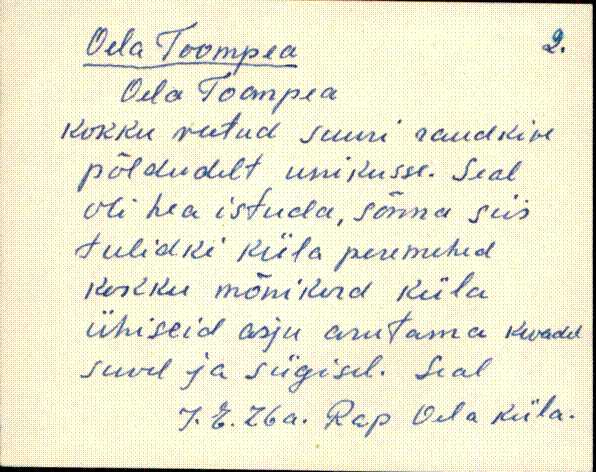 Oela Toompea 2.
Oela Toompea
Kokku veetud suuri raudkive
põldudelt unikusse. Seal
oli hea istuda, sõnna siis
tulidki küla peremehed
kokku mõnikord küla
ühiseid asju arutama kevadel
suvel ja sügisel. Seal
J. E. 76a. Rap Oela küla.